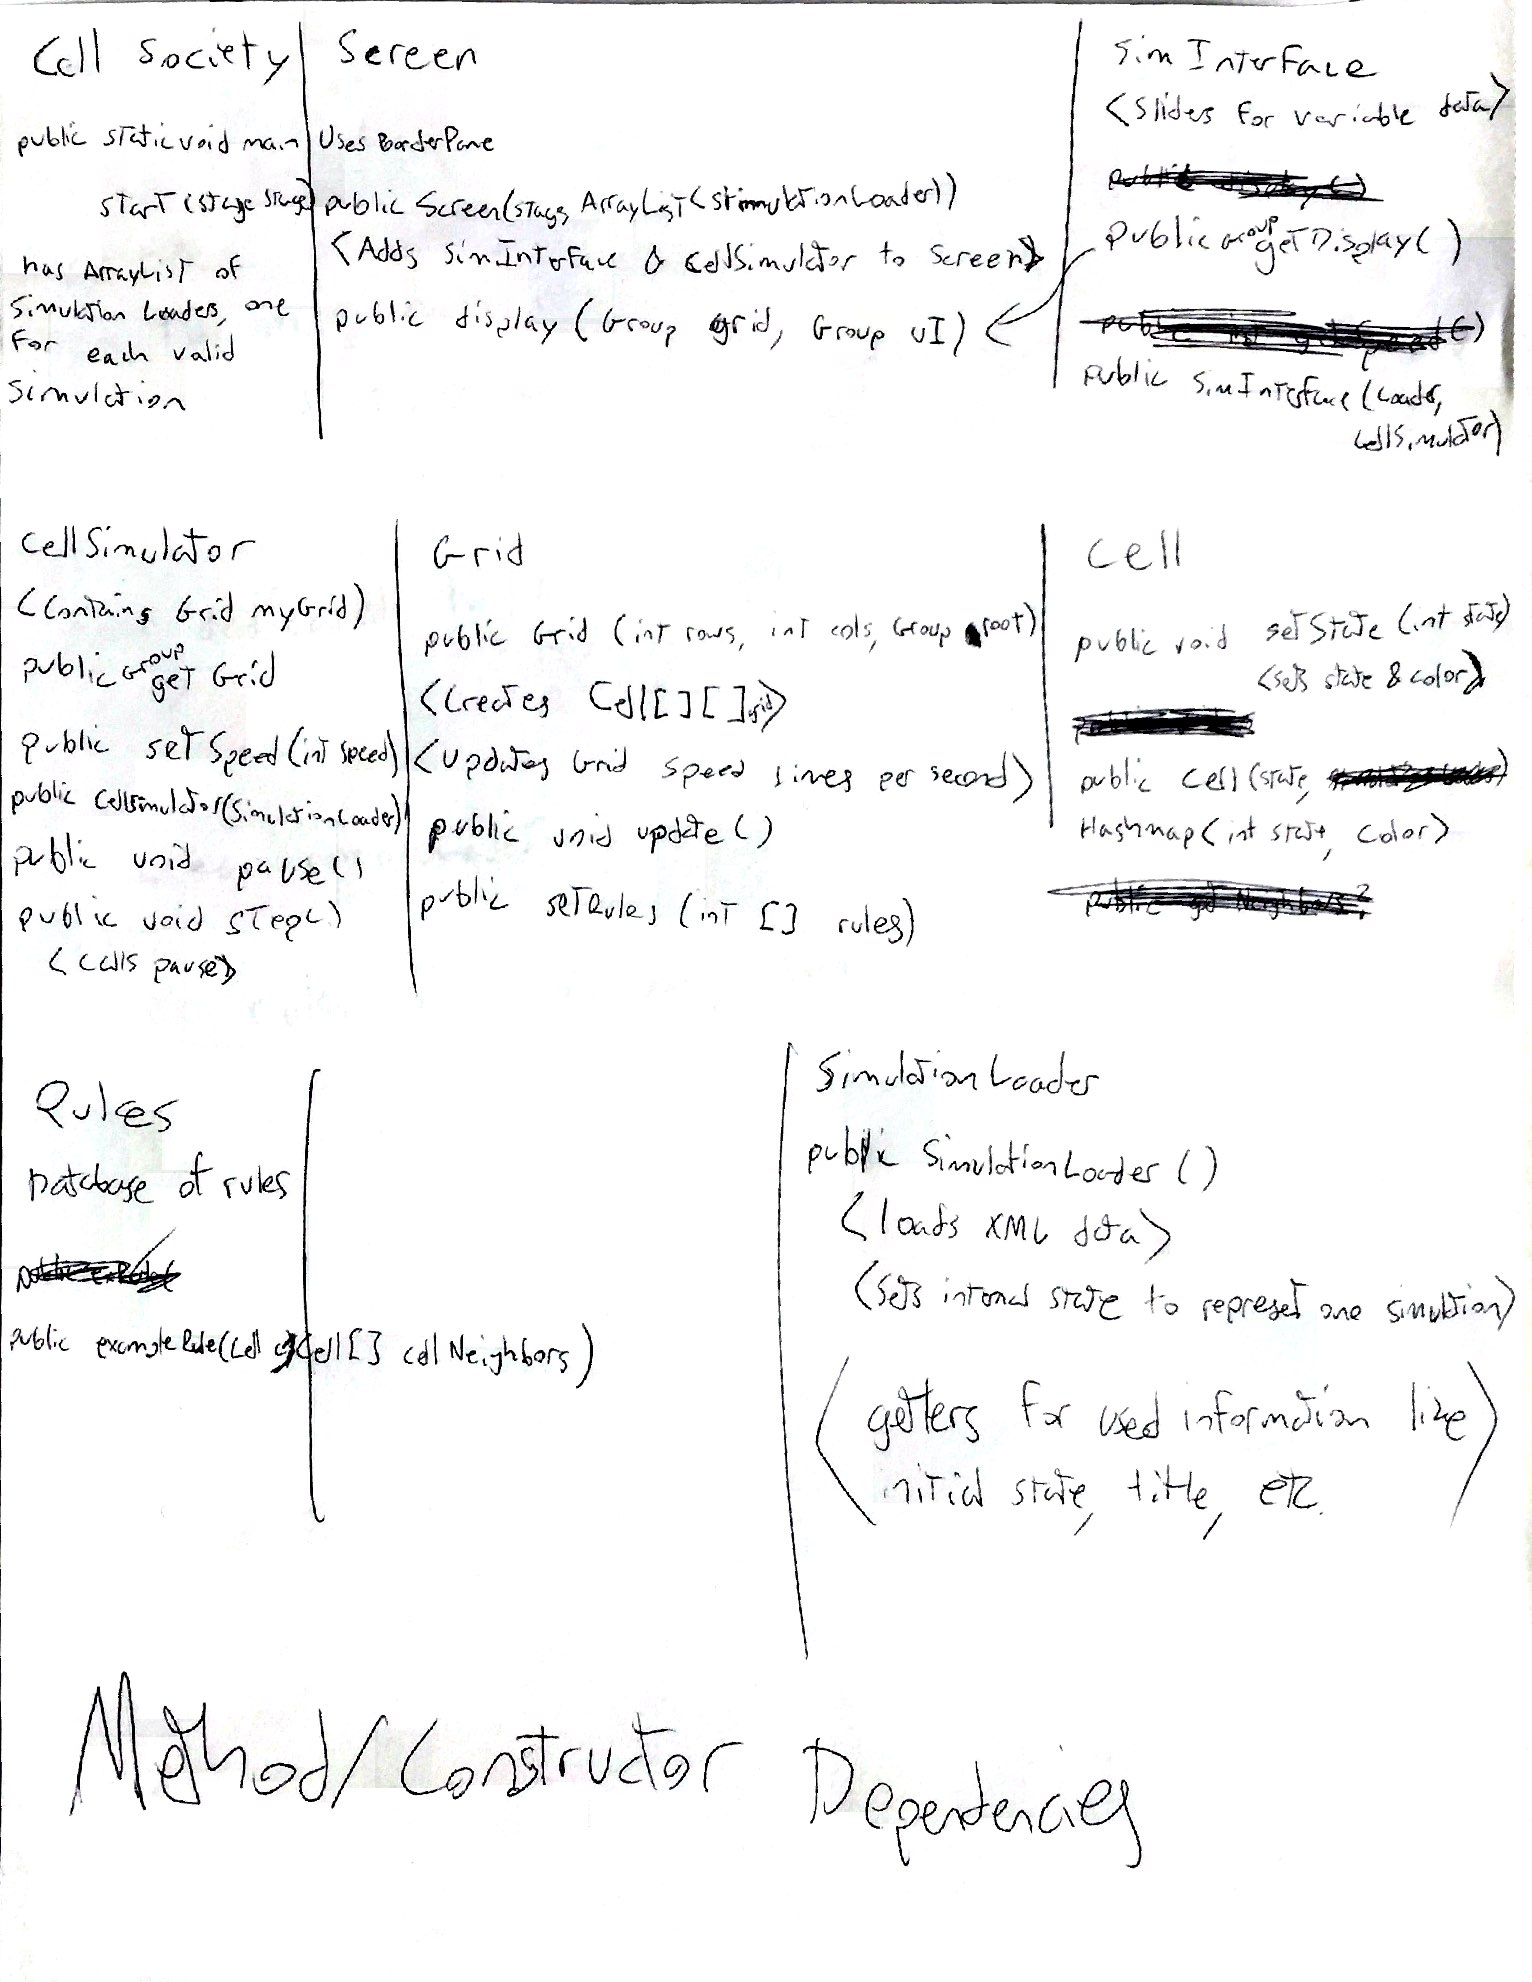 Cell Society
public static void main
start (stage stage)
has ArrayList of
Simulation Loaders, one
for each valid
simulation
Screen
Uses BorderPane
public Screen(stage, ArrayList<SimulationLoader>)
<Adds SimInterface & CellSimulator to Screen>
public display (Group grid, Group UI)
Sim Interface
<sliders for variable data>
public display()
public Group getDisplay()
public SimInterface (Loader,
CellSimulator)
CellSimulator
<contains Grid myGrid>
public Group get Grid
public setSpeed(int speed)
public CellSimulator(SimulationLoader)
public void pause()
public void step()
<calls pause>
Grid
public Grid (int rows, int cols, Group root)
<Creates Cell[][] grid>
<Updates Grid speed times per second>
public void update()
public setRules (int [] rules)
Cell
public void setState (int state)
<sets state & color>
public Cell (state,
Hashmap<int state, color>
public get Neighbors?
Rules
Database of rules
public exampleRule(Cell c, Cell[] cellNeighbors)
SimulationLoader
public SimulationLoader ()
<loads XML data>
<sets internal state to represet one simulation>
<getters for used information like
initial state, title, etc.>
Method/Constructor Dependencies